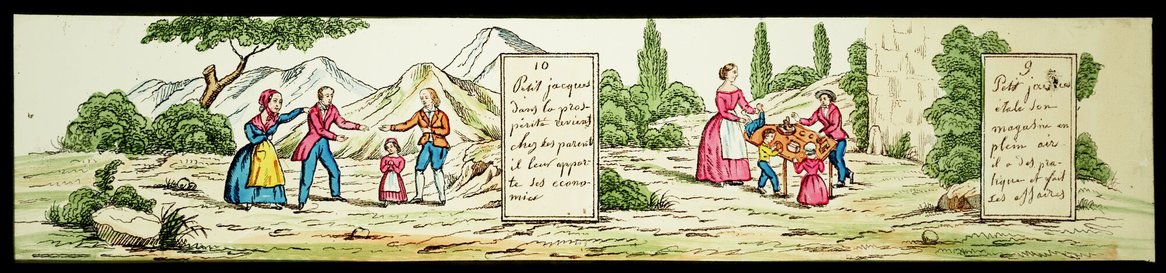 10
Petit jacques
dans la pros-
périté revient
chez ses parent
il leur appor-
te ses econo-
mies
9
Petit jacques
étale son
magasin en
plein air
il a des pra-
tique et fait
ses affaires